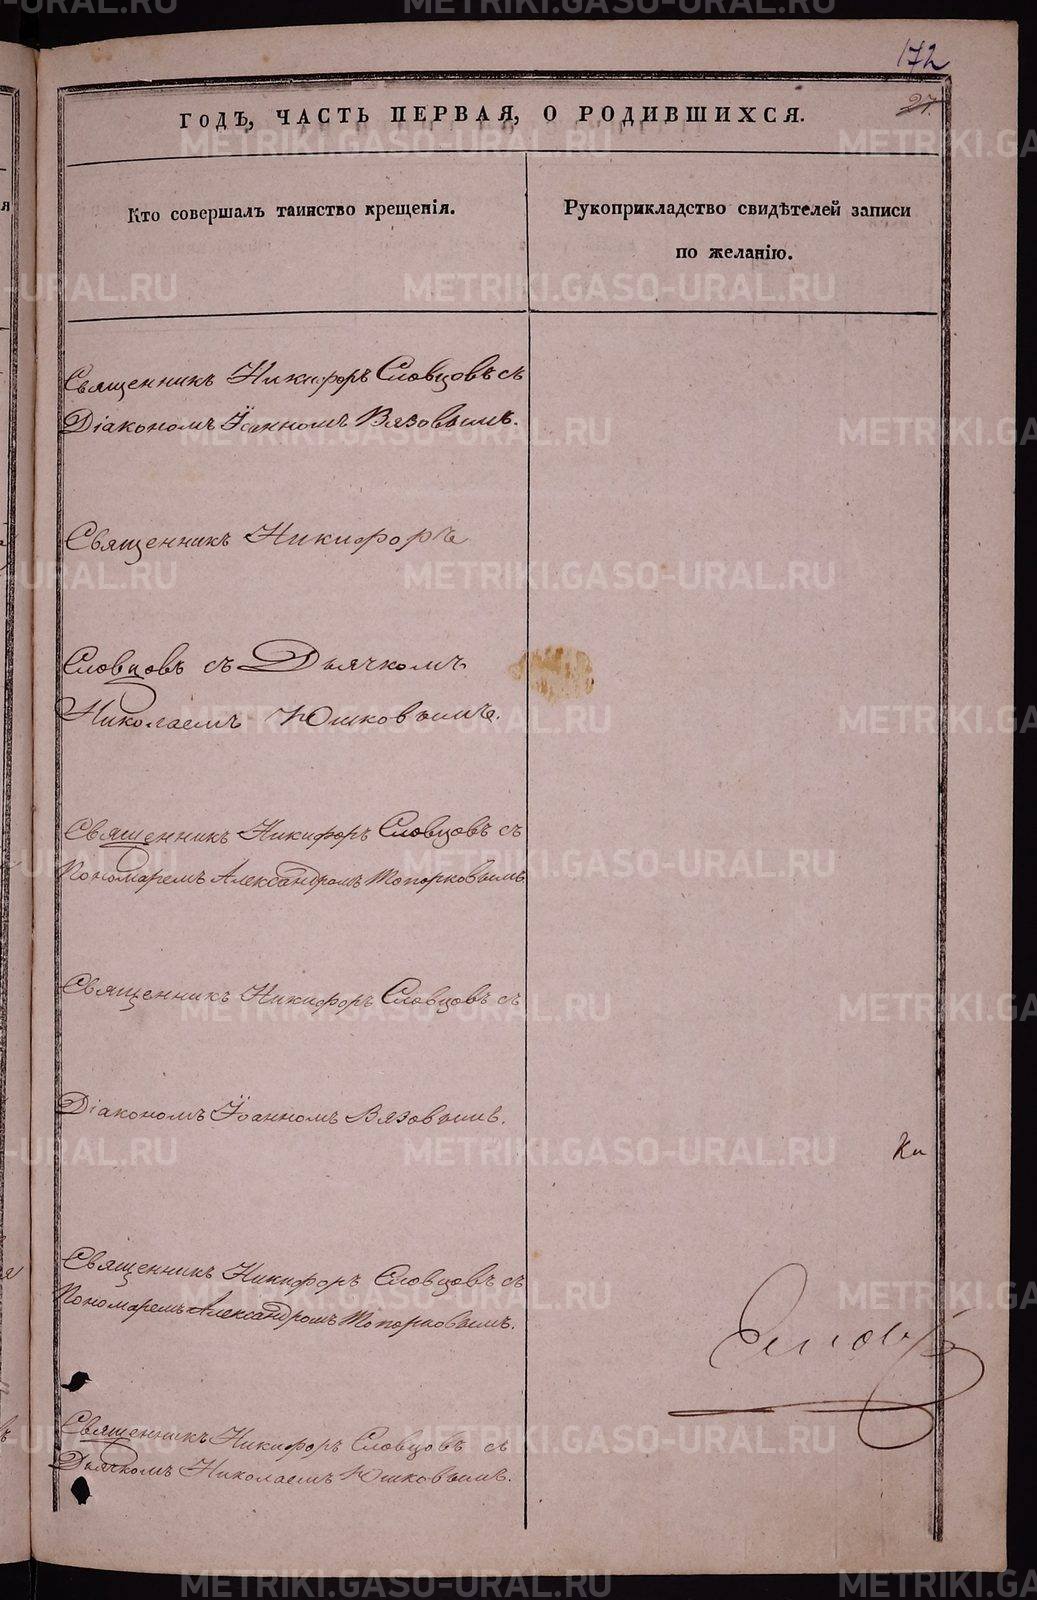 172
27.
ГОДЪ, ЧАСТЬ ПЕРВАЯ, О РОДИВШИХСЯ.
Кто совершалъ таинство крещенія.
Рукоприкладство свидѣтелей записи
по желанію.
Священникъ Никифоръ Словцовъ съ
Діакономъ Іоанномъ Вязовымъ.
Священникъ Никифоръ
Словцовъ съ Дьячкомъ
Николаемъ Юшковымъ.
Священникъ Никифоръ Словцовъ съ
Пономаремъ Александромъ Топорковымъ
Священникъ Никифоръ Словцовъ съ
Діакономъ Іоанномъ Вязовымъ.
Священникъ Никифоръ Словцовъ съ
Пономаремъ Александромъ Топорковымъ.
Священникъ Никифоръ Словцовъ съ
Дьячкомъ Николаемъ Юшковымъ.
METRIKI.GASO-URAL.RU